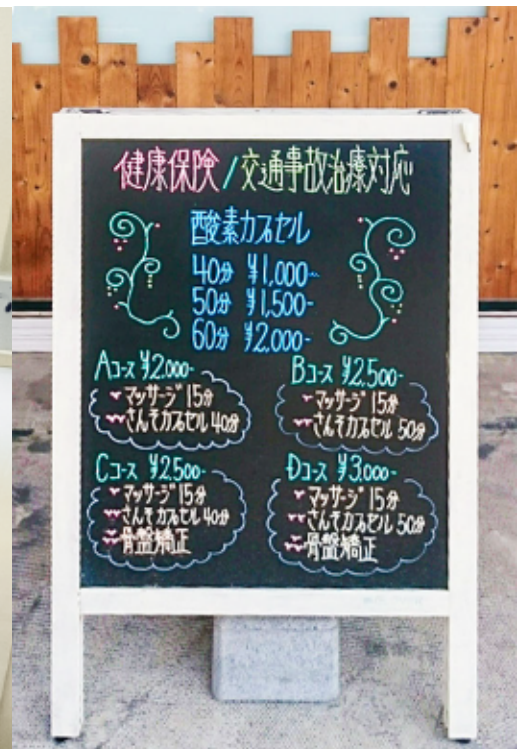 健康保険/交通事故治療対応
酸素カプセル
40分 ¥1,000-
50分 ¥1,500-
60分 ¥2,000-
Aコース ¥2.000-
マッサージ 15分
さんそカプセル 40分
Bコース ¥2.500-
マッサージ 15分
さんそカプセル 50分
Cコース ¥2.500-
マッサージ 15分
さんそカプセル 40分
骨盤矯正
Dコース ¥3.000-
マッサージ 15分
さんそカプセル 50分
骨盤矯正